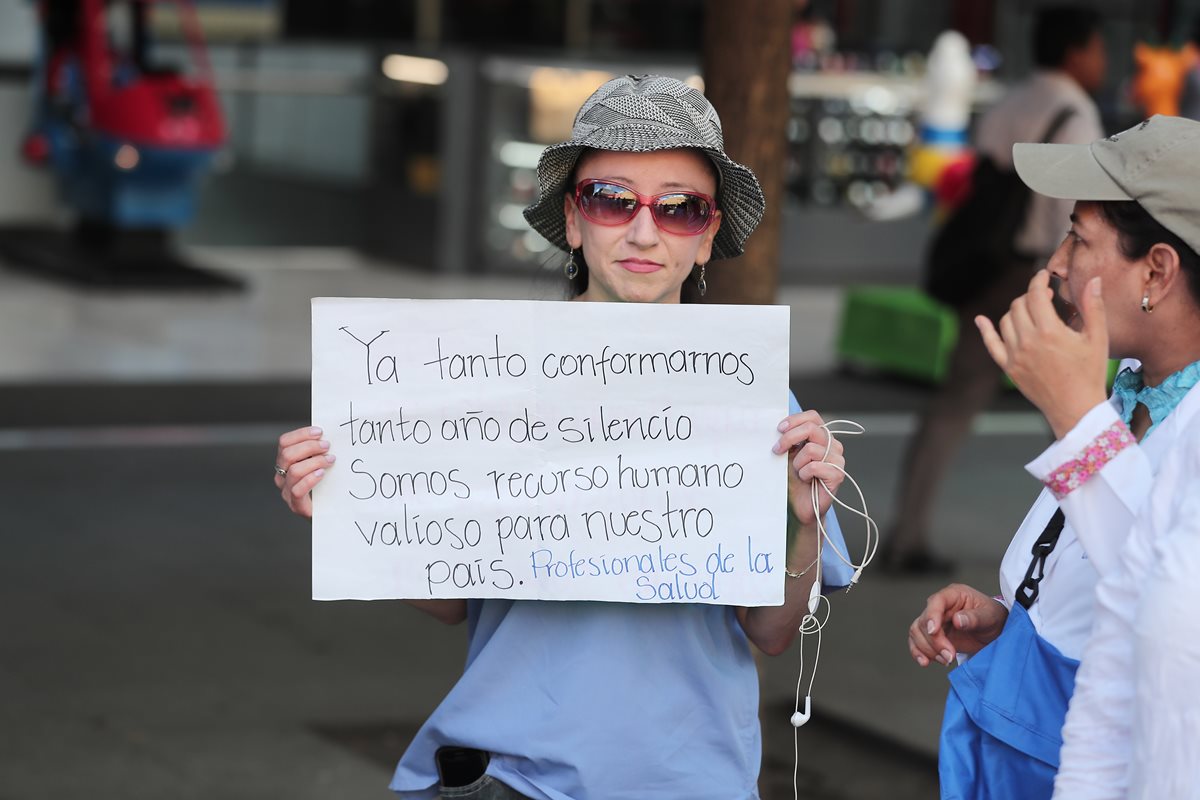 Ya tanto conformarnos
tanto año de silencio
Somos recurso humano
valioso para nuestro
país. Profesionales de la
Salud